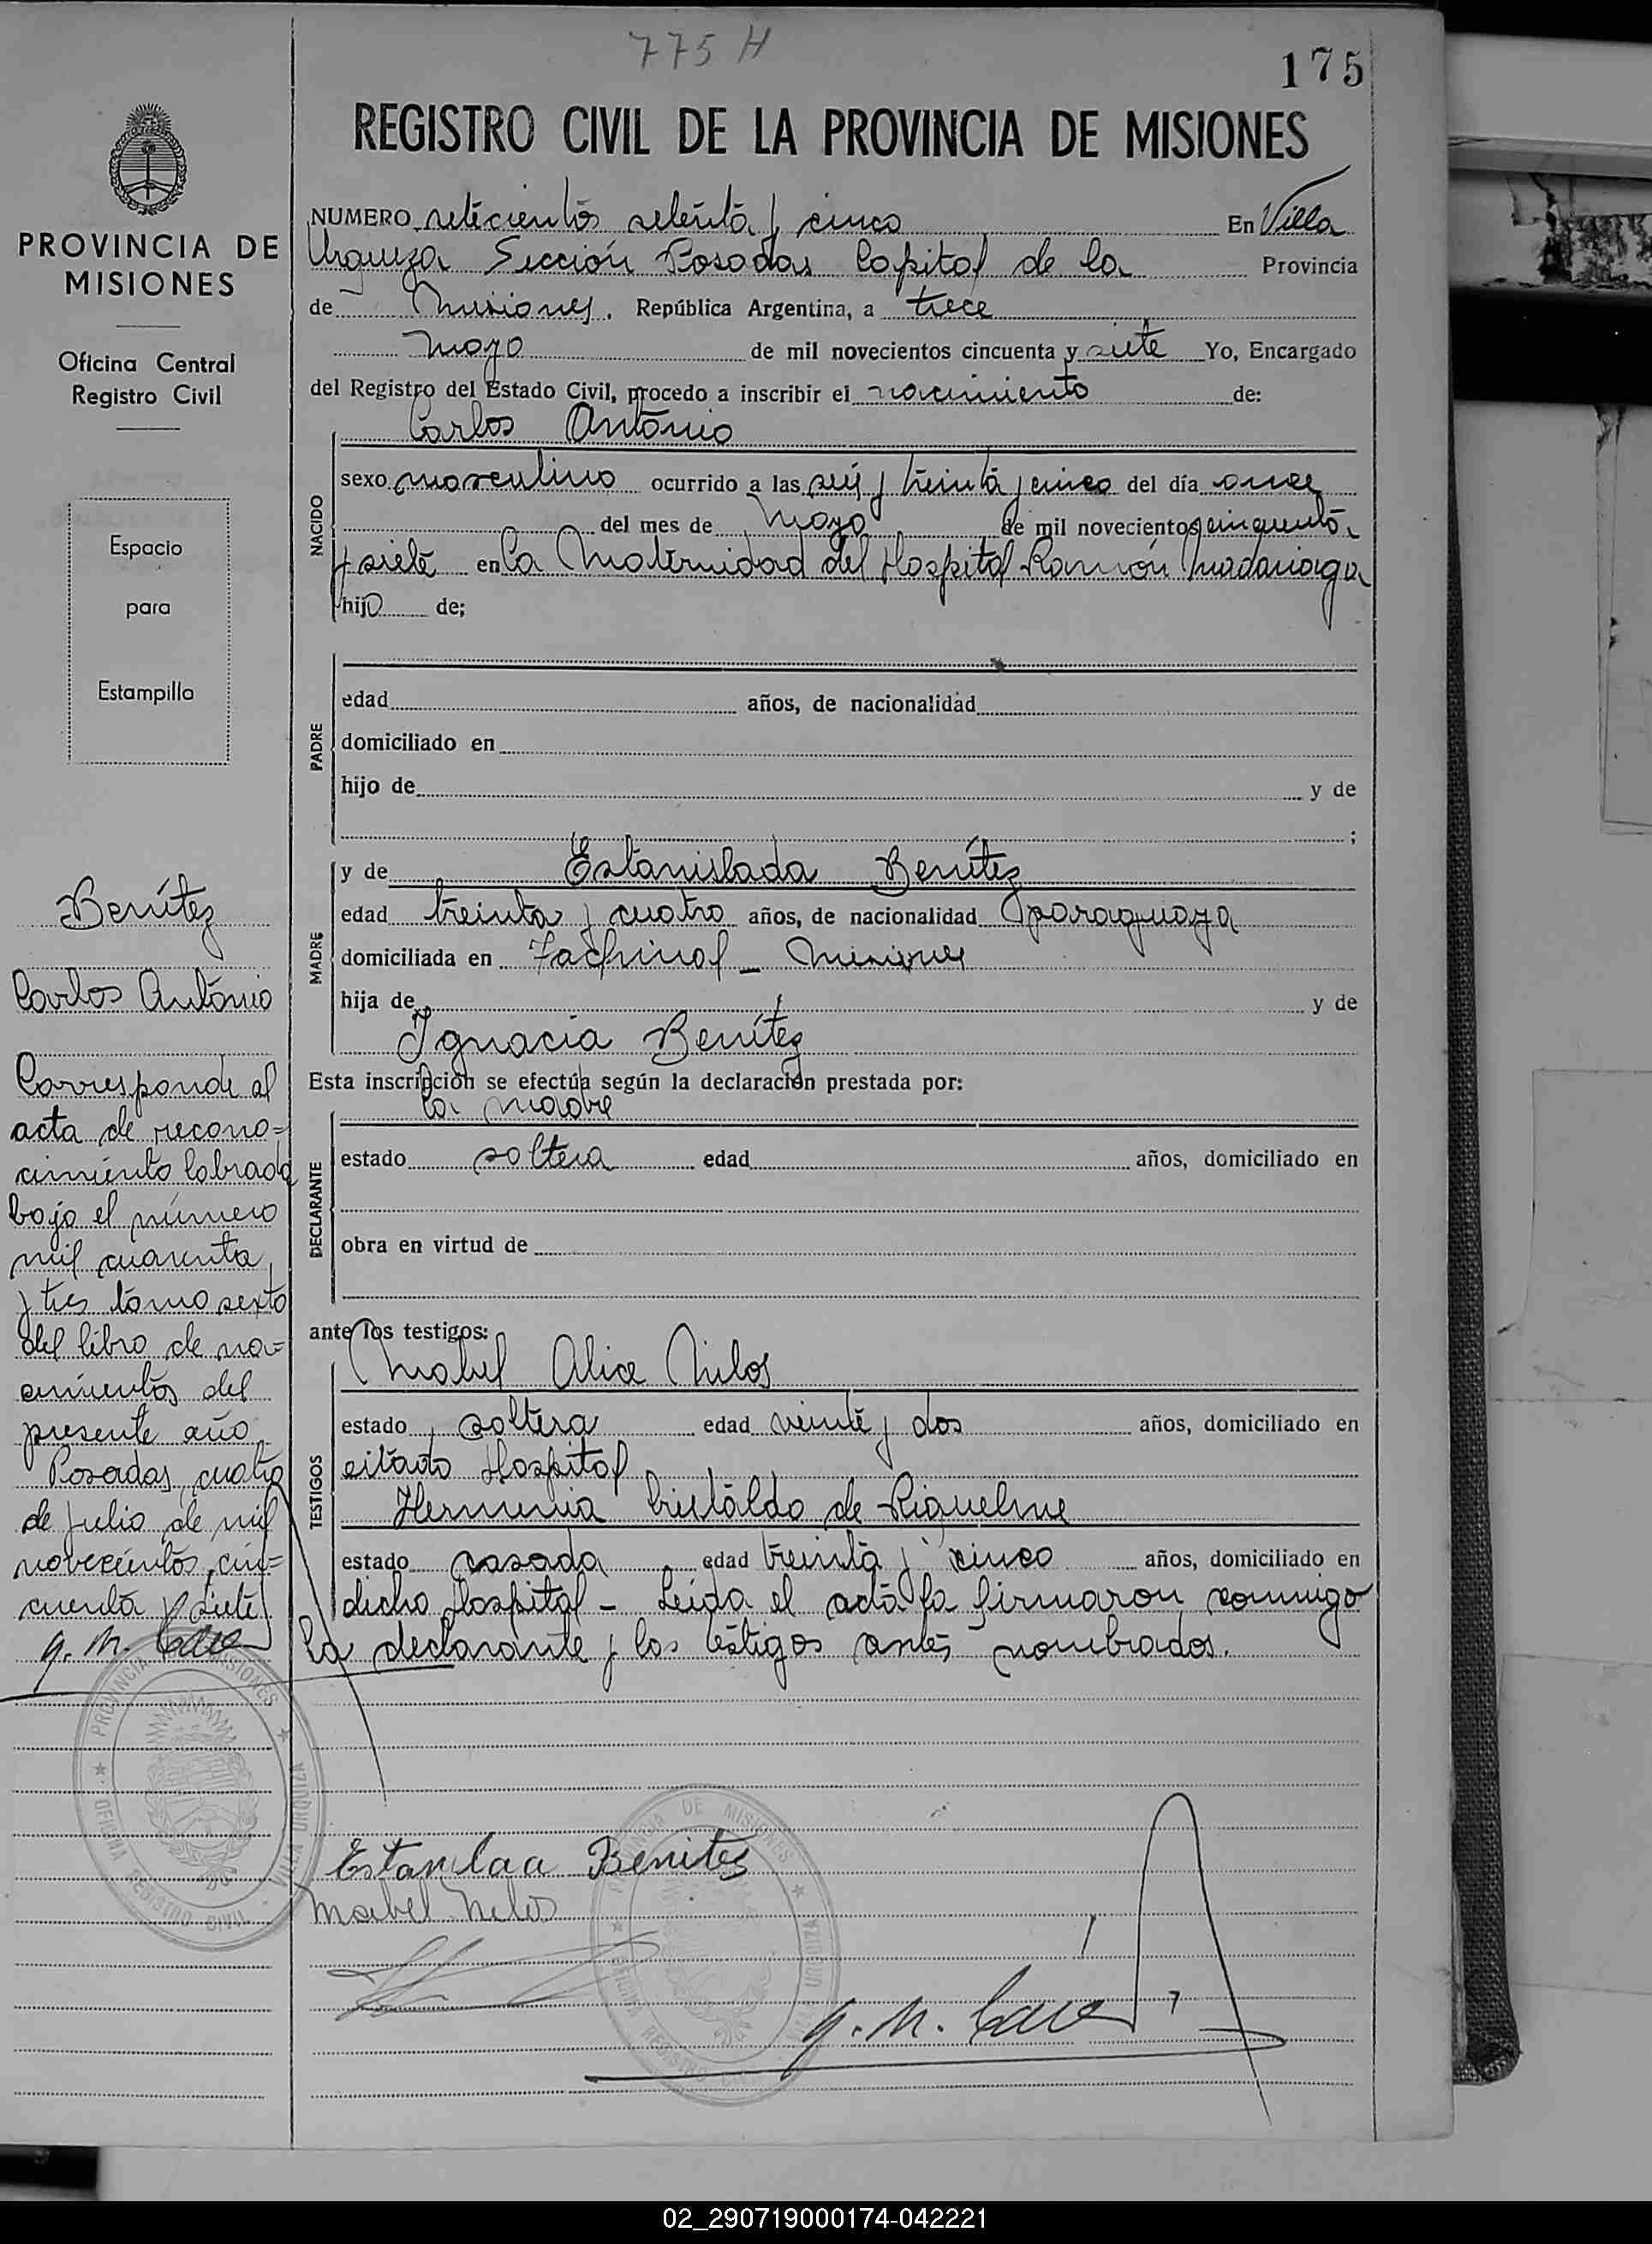 775 H
175
REGISTRO CIVIL DE LA PROVINCIA DE MISIONES
PROVINCIA DE
MISIONES
Oficina Central
Registro Civil
Espacio
para
Estampilla
NUMERO setecientos setenta y cinco En Villa
Urquiza Sección Posadas Capital de la Provincia
de Misiones. República Argentina, a trece
mayo de mil novecientos cincuenta y siete Yo, Encargado
del Registro del Estado Civil, procedo a inscribir el nacimiento de:
NACIDO
Carlos Antonio
sexo masculino ocurrido a las seis y treinta y cinco del día once
del mes de mayo de mil novecientos cincuenta
y siete en la Maternidad del Hospital Ramón Madariaga
hijo de;
PADRE
edad años, de nacionalidad
domiciliado en
hijo de y de
;
MADRE
y de Estanislada Benítez
edad treinta y cuatro años, de nacionalidad paraguaya
domiciliada en Fachinal - Misiones
hija de y de
Ignacia Benítez
Esta inscripción se efectúa según la declaración prestada por:
DECLARANTE
la madre
estado soltera edad años, domiciliado en
obra en virtud de
ante los testigos:
TESTIGOS
Mabel Alice Milos
estado soltera edad veinte y dos años, domiciliado en
citado Hospital
Herminia Cristaldo de Riquelme
estado casada edad treinta y cinco años, domiciliado en
dicho Hospital - Leida el acta la firmaron conmigo
la declarante y los testigos antes nombrados.
Benítez
Carlos Antonio
Corresponde al
acta de recono=
cimiento labrada
bajo el número
mil cuarenta
y tres tomo sexto
del libro de na=
cimientos del
presente año
Posadas, cuatro
de julio de mil
novecientos cin=
cuenta y siete
PROVINCIA DE MISIONES
OFICINA REGISTRO CIVIL
VILLA URQUIZA
Estanlaa Benites
Mabel Milos
PROVINCIA DE MISIONES
OFICINA REGISTRO CIVIL
VILLA URQUIZA
02_290719000174-042221